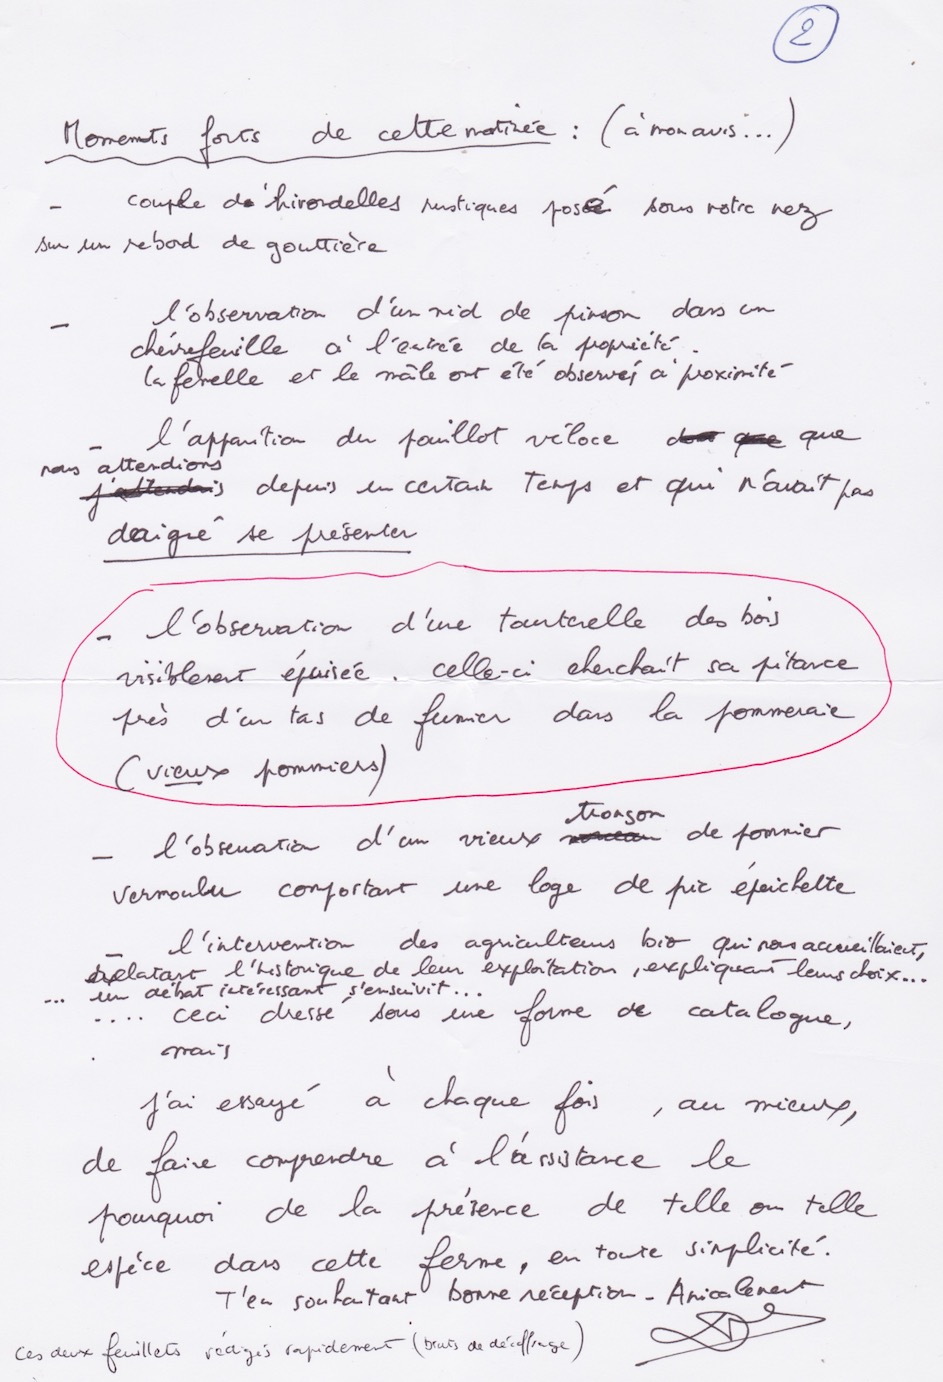 2
Moments forts de cette matinée : (à mon avis...)
- couple de hirondelles rustiques posé sous notre nez
sur un rebord de gouttière
- l'observation d'un nid de pinson dans un
chèvrefeuille à l'entrée de la propriété.
la femelle et le mâle ont été observés à proximité
- l'apparition du pouillot véloce que
nous attendions
depuis un certain temps et qui n'avait pas
daigné se présenter
- l'observation d'une tourterelle des bois
visiblement épuisée. celle-ci cherchait sa pitance
près d'un tas de fumier dans la pommeraie
(vieux pommiers)
tronçon
- l'observation d'un vieux de pommier
vermoulu comportant une loge de pic épeichette
- l'intervention des agriculteurs bio qui nous accueillaient,
relatant l'historique de leur exploitation, expliquant leurs choix...
... un débat intéressant s'ensuivit...
.... ceci dressé sous une forme de catalogue,
. mais
j'ai essayé à chaque fois, au mieux,
de faire comprendre à l'assistance le
pourquoi de la présence de telle ou telle
espèce dans cette ferme, en toute simplicité.
T'en souhaitant bonne réception - Amicalement
Ces deux feuillets rédigés rapidement (bruts de décoffrage)